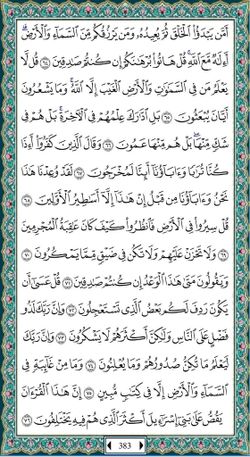 أَمَّن يَبْدَؤُا۟ ٱلْخَلْقَ ثُمَّ يُعِيدُهُۥ وَمَن يَرْزُقُكُم مِّنَ ٱلسَّمَآءِ وَٱلْأَرْضِ ۗ
أَءِلَـٰهٌ مَّعَ ٱللَّهِ ۚ قُلْ هَاتُوا۟ بُرْهَـٰنَكُمْ إِن كُنتُمْ صَـٰدِقِينَ ٦٤ قُل لَّا
يَعْلَمُ مَن فِى ٱلسَّمَـٰوَٰتِ وَٱلْأَرْضِ ٱلْغَيْبَ إِلَّا ٱللَّهُ ۚ وَمَا يَشْعُرُونَ
أَيَّانَ يُبْعَثُونَ ٦٥ بَلِ ٱدَّٰرَكَ عِلْمُهُمْ فِى ٱلْـَٔاخِرَةِ ۚ بَلْ هُمْ فِى
شَكٍّ مِّنْهَا ۖ بَلْ هُم مِّنْهَا عَمُونَ ٦٦ وَقَالَ ٱلَّذِينَ كَفَرُوٓا۟ أَءِذَا
كُنَّا تُرَٰبًا وَءَابَآؤُنَآ أَئِنَّا لَمُخْرَجُونَ ٦٧ لَقَدْ وُعِدْنَا هَـٰذَا
نَحْنُ وَءَابَآؤُنَا مِن قَبْلُ إِنْ هَـٰذَآ إِلَّآ أَسَـٰطِيرُ ٱلْأَوَّلِينَ ٦٨
قُلْ سِيرُوا۟ فِى ٱلْأَرْضِ فَٱنظُرُوا۟ كَيْفَ كَانَ عَـٰقِبَةُ ٱلْمُجْرِمِينَ
٦٩ وَلَا تَحْزَنْ عَلَيْهِمْ وَلَا تَكُن فِى ضَيْقٍ مِّمَّا يَمْكُرُونَ ٧٠
وَيَقُولُونَ مَتَىٰ هَـٰذَا ٱلْوَعْدُ إِن كُنتُمْ صَـٰدِقِينَ ٧١ قُلْ عَسَىٰٓ أَن
يَكُونَ رَدِفَ لَكُم بَعْضُ ٱلَّذِى تَسْتَعْجِلُونَ ٧٢ وَإِنَّ رَبَّكَ لَذُو
فَضْلٍ عَلَى ٱلنَّاسِ وَلَـٰكِنَّ أَكْثَرَهُمْ لَا يَشْكُرُونَ ٧٣ وَإِنَّ رَبَّكَ
لَيَعْلَمُ مَا تُكِنُّ صُدُورُهُمْ وَمَا يُعْلِنُونَ ٧٤ وَمَا مِنْ غَآئِبَةٍ فِى
ٱلسَّمَآءِ وَٱلْأَرْضِ إِلَّا فِى كِتَـٰبٍ مُّبِينٍ ٧٥ إِنَّ هَـٰذَا ٱلْقُرْءَانَ
يَقُصُّ عَلَىٰ بَنِىٓ إِسْرَٰٓءِيلَ أَكْثَرَ ٱلَّذِى هُمْ فِيهِ يَخْتَلِفُونَ ٧٦
383